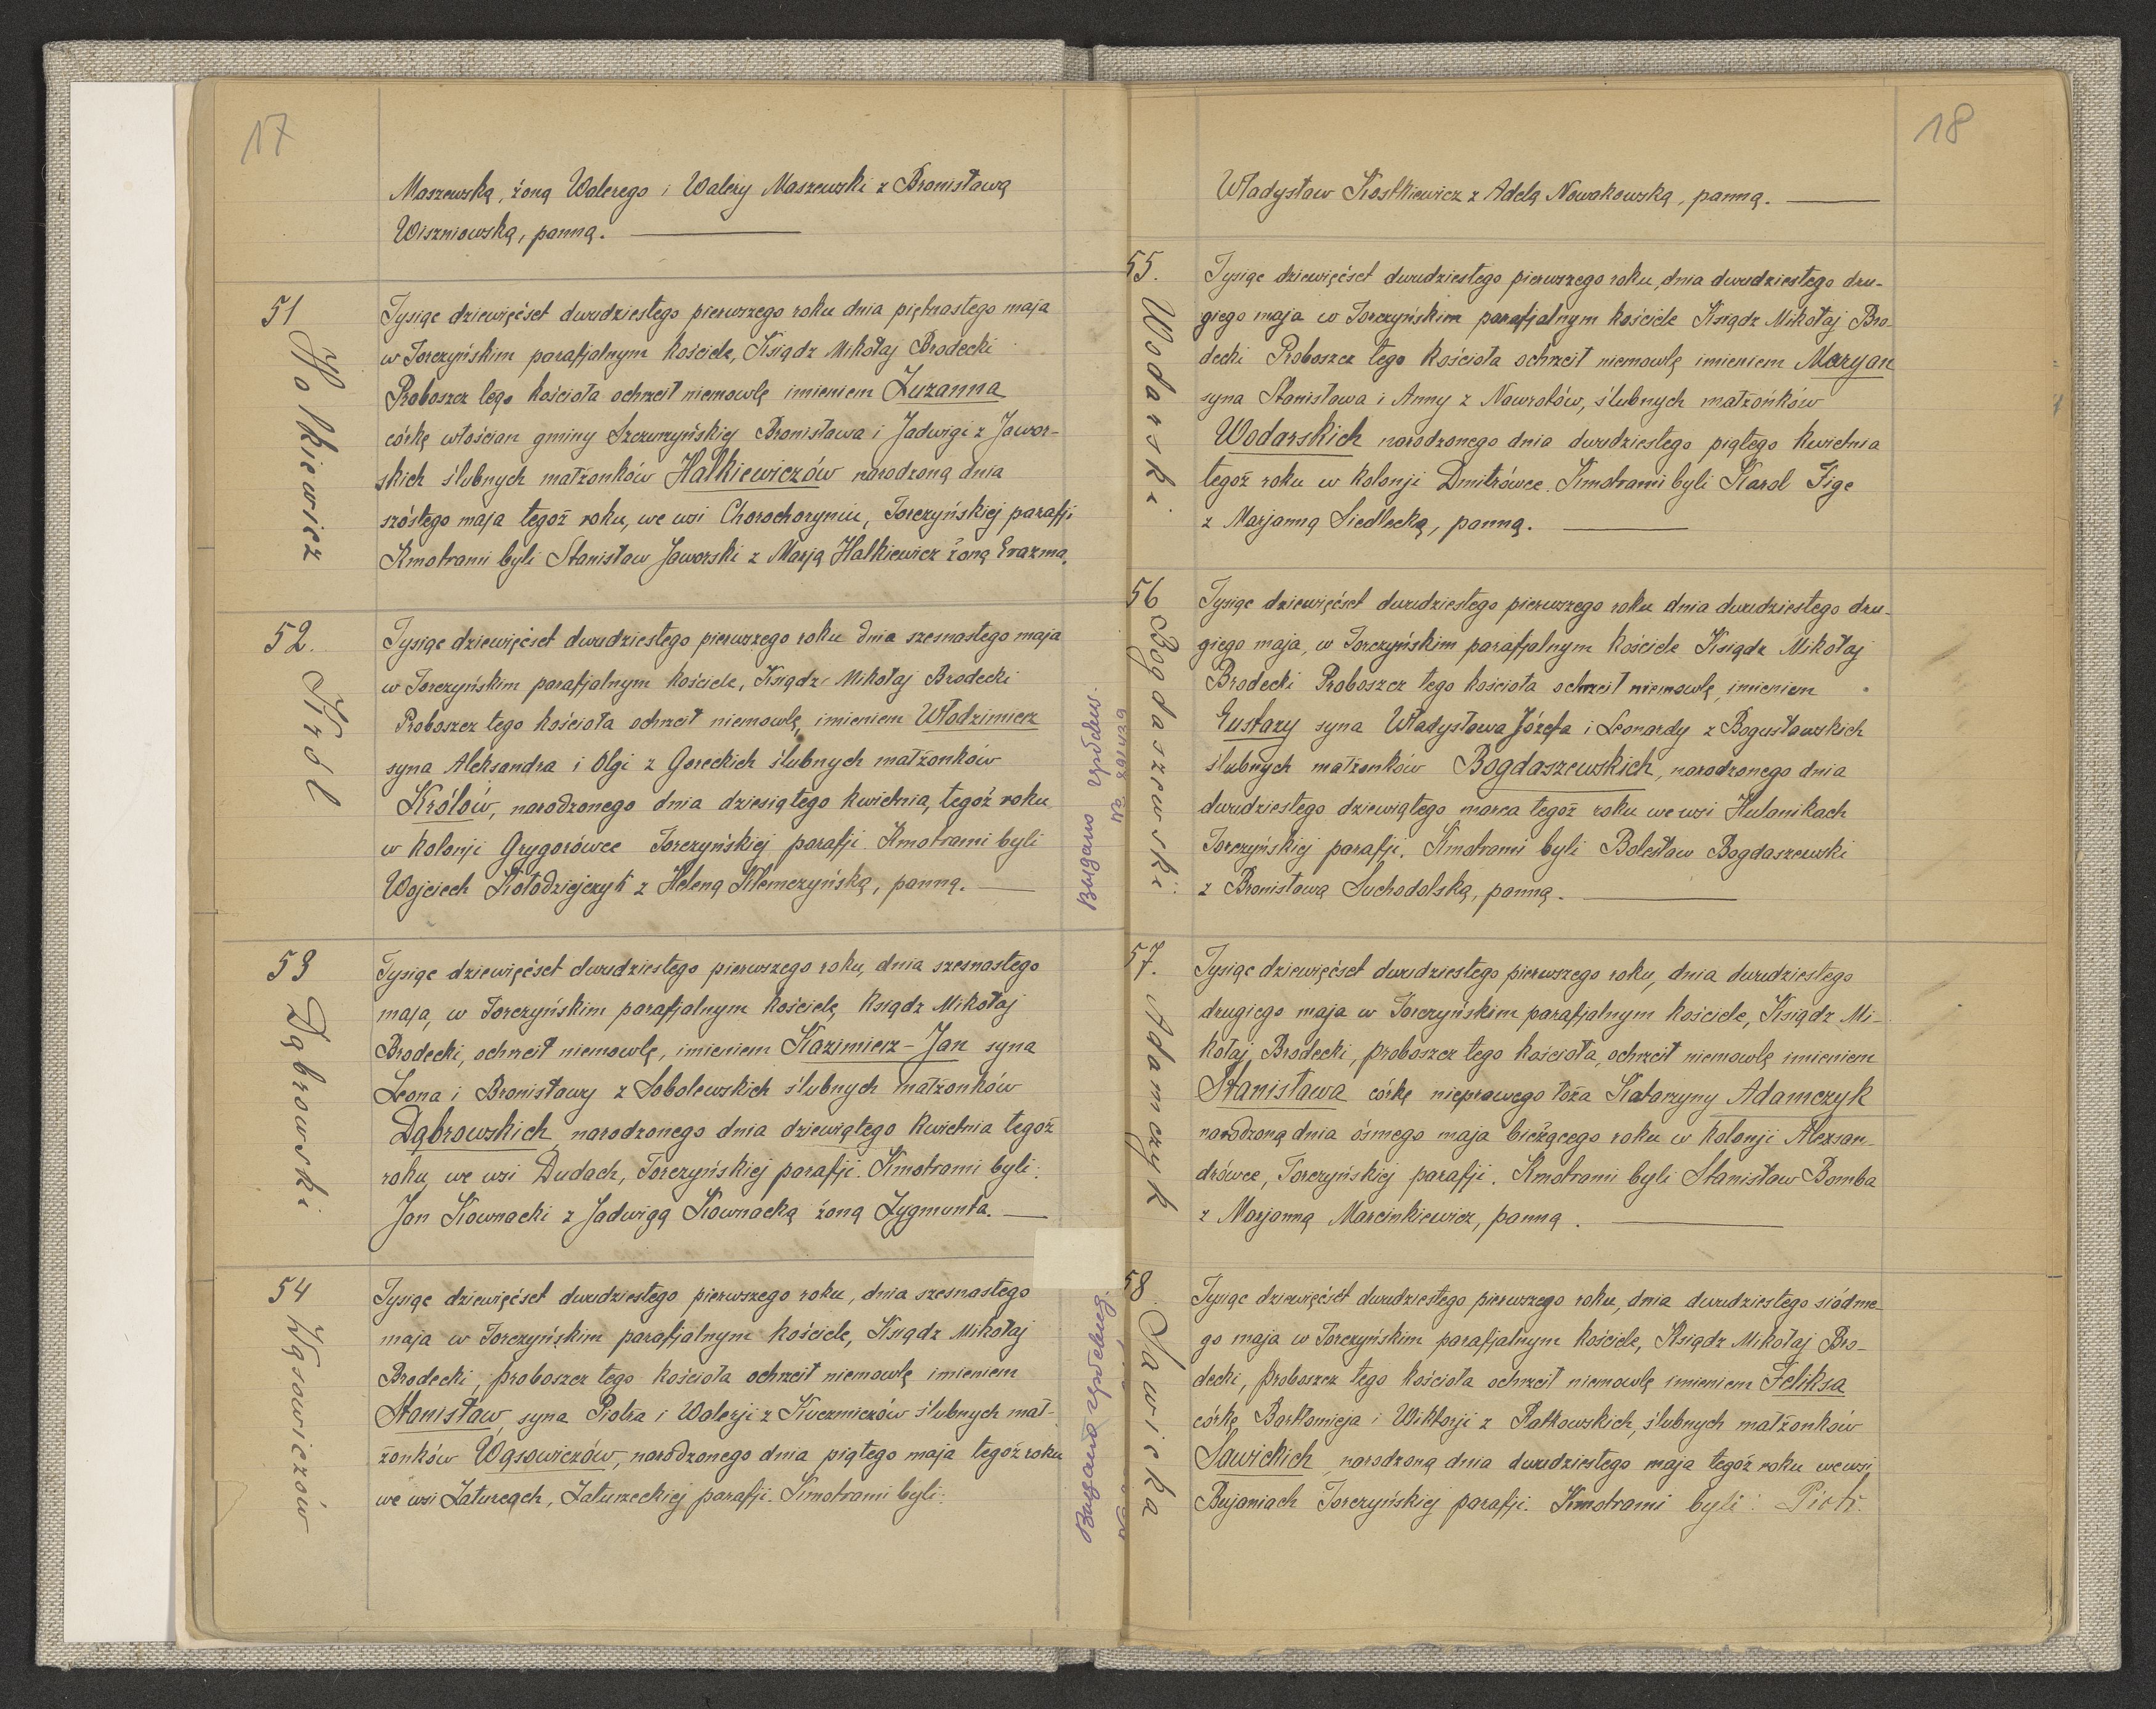 17
Maszewską, żoną Walerego i Walery Maszewski z Bronisławą
Wiszniowską, panną.
51
Halkiewicz
Tysiąc dziewięćset dwudziestego pierwszego roku dnia piętnastego maja
w Torczyńskim parafjalnym kościele, Ksiądz Mikołaj Brodecki
Proboszcz tego kościoła ochrzcił niemowlę imieniem Zuzanna
córkę włościan gminy Szczurzyńskiej Bronisława i Jadwigi z Jawor-
skich ślubnych małżonków Halkiewiczów narodzoną dnia
szóstego maja tegoż roku, we wsi Chorochoryniu, Torczyńskiej parafji
Kmotrami byli Stanisław Jaworski z Marją Halkiewicz żoną Erazma.
52.
Król
Tysiąc dziewięćset dwudziestego pierwszego roku dnia szesnastego maja
w Torczyńskim parafjalnym kościele, Ksiądz Mikołaj Brodecki
Proboszcz tego kościoła ochrzcił niemowlę, imieniem Włodzimierz
syna Aleksandra i Olgi z Goreckich ślubnych małżonków
Królów, narodzonego dnia dziesiątego kwietnia, tegoż roku
w kolonji Grygorówce Torczyńskiej parafji Kmotrami byli
Wojciech Kołodziejczyk z Heleną Klemczyńską, panną.
53
Dąbrowski
Tysiąc dziewięćset dwudziestego pierwszego roku, dnia szesnastego
maja, w Torczyńskim parafjalnym kościele, ksiądz Mikołaj
Brodecki, ochrzcił niemowlę, imieniem Kazimierz-Jan syna
Leona i Bronisławy z Sobolewskich ślubnych małżonków
Dąbrowskich narodzonego dnia dziewiątego kwietnia tegoż
roku, we wsi Dudach, Torczyńskiej parafji. Kmotrami byli:
Jan Kownacki z Jadwigą Kownacką żoną Zygmunta.
54
Wąsowiczów
Tysiąc dziewięćset dwudziestego pierwszego roku, dnia szesnastego
maja w Torczyńskim parafjalnym kościele, Ksiądz Mikołaj
Brodecki, proboszcz tego kościoła ochrzcił niemowlę imieniem
Stanisław, syna Piotra i Walerji z Kuczmiczów ślubnych mał-
żonków Wąsowiczów, narodzonego dnia piątego maja tegoż roku
we wsi Zaturcach, Zaturzeckiej parafji. Kmotrami byli:
18
Władysław Kostkiewicz z Adelą Nowakowską, panną.
55.
Wodarski
Tysiąc dziewięćset dwudziestego pierwszego roku, dnia dwudziestego dru-
giego maja w Torczyńskim parafjalnym kościele Ksiądz Mikołaj Bro-
decki Proboszcz tego kościoła ochrzcił niemowlę imieniem Maryan
syna Stanisława i Anny z Nawrotów, ślubnych małżonków
Wodarskich narodzonego dnia dwudziestego piątego kwietnia
tegoż roku w kolonji Dmitrówce. Kmotrami byli Karol Fige
z Marjanną Siedlecką, panną.
56
Bogdaszewski
Tysiąc dziewięćset dwudziestego pierwszego roku dnia dwudziestego dru-
giego maja, w Torczyńskim parafjalnym kościele Ksiądz Mikołaj
Brodecki Proboszcz tego kościoła ochrzcił niemowlę, imieniem
Eustazy syna Władysława Józefa i Leonardy z Bogusławskich
ślubnych małżonków Bogdaszewskich, narodzonego dnia
dwudziestego dziewiątego marca tegoż roku we wsi Hulanikach
Torczyńskiej parafji. Kmotrami byli Bolesław Bogdaszewski
z Bronisławą Suchodolską, panną.
57.
Adamczyk
Tysiąc dziewięćset dwudziestego pierwszego roku, dnia dwudziestego
drugiego maja w Torczyńskim parafjalnym kościele, Ksiądz Mi-
kołaj Brodecki, proboszcz tego kościoła, ochrzcił niemowlę imieniem
Stanisława córkę nieprawego łoża Katarzyny Adamczyk
narodzoną dnia ósmego maja bieżącego roku w kolonji Alexan-
drówce, Torczyńskiej parafji. Kmotrami byli Stanisław Bomba
z Marjanną Marcinkiewicz, panną.
58
Sawicka
Tysiąc dziewięćset dwudziestego pierwszego roku, dnia dwudziestego siódme-
go maja w Torczyńskim parafjalnym kościele, Ksiądz Mikołaj Bro-
decki, proboszcz tego kościoła ochrzcił niemowlę imieniem Feliksa
córkę Bartłomieja i Wiktorji z Ratkowskich, ślubnych małżonków
Sawickich, narodzoną dnia dwudziestego maja tegoż roku we wsi
Bujaniach Torczyńskiej parafji. Kmotrami byli: Piotr